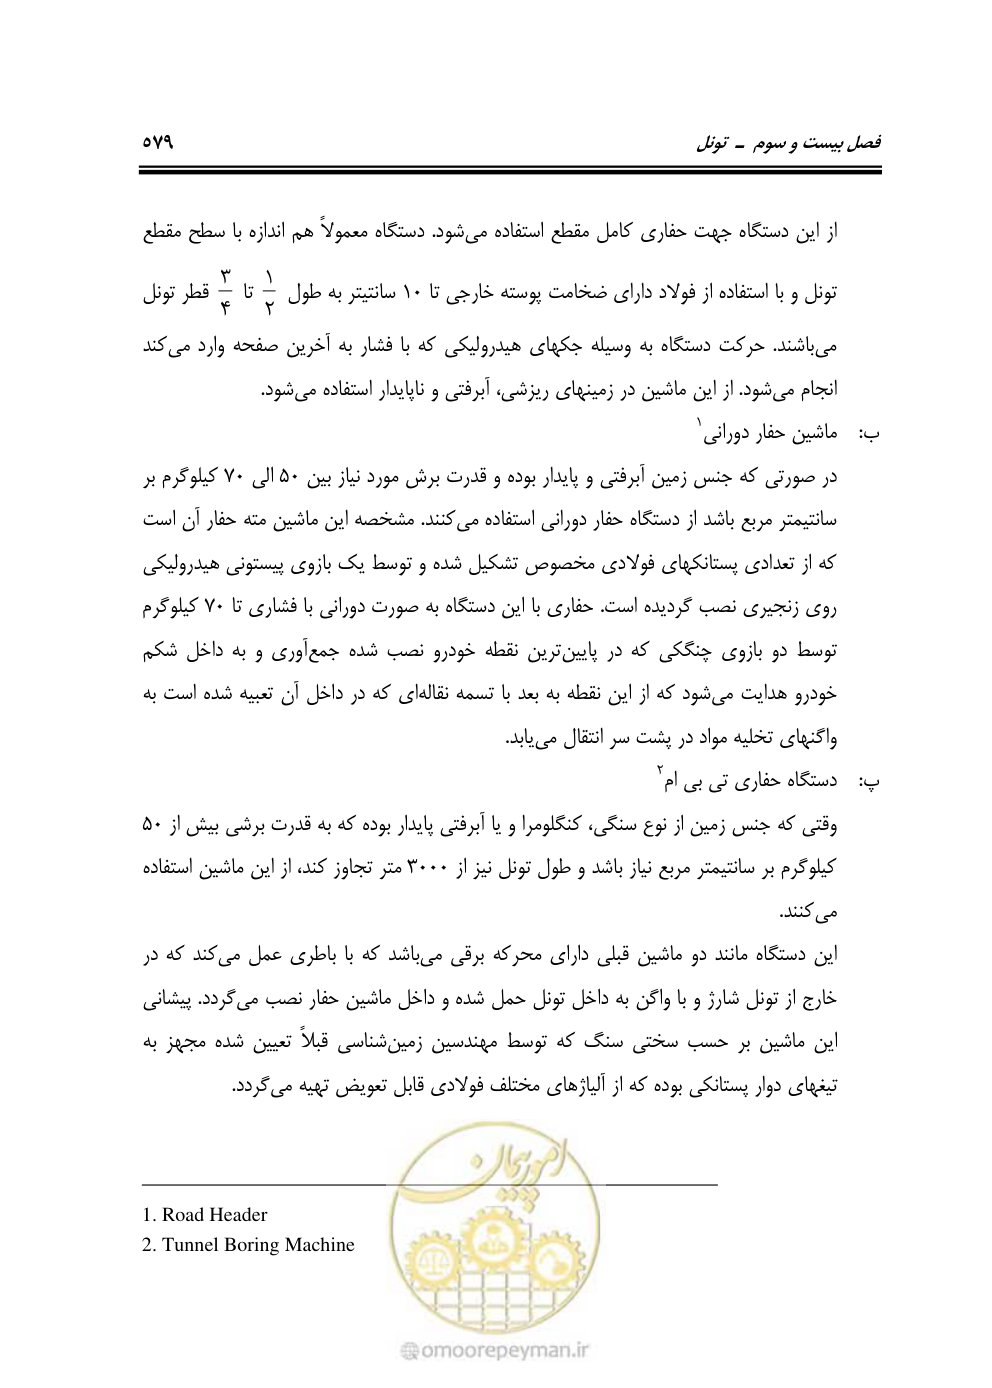 فصل بیست و سوم ـ تونل ۵۷۹
از این دستگاه جهت حفاری کامل مقطع استفاده می‌شود. دستگاه معمولاً هم اندازه با سطح مقطع
تونل و با استفاده از فولاد دارای ضخامت پوسته خارجی تا ۱۰ سانتیتر به طول ۱/۲ تا ۳/۴ قطر تونل
می‌باشند. حرکت دستگاه به وسیله جکهای هیدرولیکی که با فشار به آخرین صفحه وارد می‌کند
انجام می‌شود. از این ماشین در زمینهای ریزشی، آبرفتی و ناپایدار استفاده می‌شود.
ب: ماشین حفار دورانی۱
در صورتی که جنس زمین آبرفتی و پایدار بوده و قدرت برش مورد نیاز بین ۵۰ الی ۷۰ کیلوگرم بر
سانتیمتر مربع باشد از دستگاه حفار دورانی استفاده می‌کنند. مشخصه این ماشین مته حفار آن است
که از تعدادی پستانکهای فولادی مخصوص تشکیل شده و توسط یک بازوی پیستونی هیدرولیکی
روی زنجیری نصب گردیده است. حفاری با این دستگاه به صورت دورانی با فشاری تا ۷۰ کیلوگرم
توسط دو بازوی چنگکی که در پایین‌ترین نقطه خودرو نصب شده جمع‌آوری و به داخل شکم
خودرو هدایت می‌شود که از این نقطه به بعد با تسمه نقاله‌ای که در داخل آن تعبیه شده است به
واگنهای تخلیه مواد در پشت سر انتقال می‌یابد.
پ: دستگاه حفاری تی بی ام۲
وقتی که جنس زمین از نوع سنگی، کنگلومرا و یا آبرفتی پایدار بوده که به قدرت برشی بیش از ۵۰
کیلوگرم بر سانتیمتر مربع نیاز باشد و طول تونل نیز از ۳۰۰۰ متر تجاوز کند، از این ماشین استفاده
می‌کنند.
این دستگاه مانند دو ماشین قبلی دارای محرکه برقی می‌باشد که با باطری عمل می‌کند که در
خارج از تونل شارژ و با واگن به داخل تونل حمل شده و داخل ماشین حفار نصب می‌گردد. پیشانی
این ماشین بر حسب سختی سنگ که توسط مهندسین زمین‌شناسی قبلاً تعیین شده مجهز به
تیغهای دوار پستانکی بوده که از آلیاژهای مختلف فولادی قابل تعویض تهیه می‌گردد.
امور پیمان
1. Road Header
2. Tunnel Boring Machine
@omoorepeyman.ir